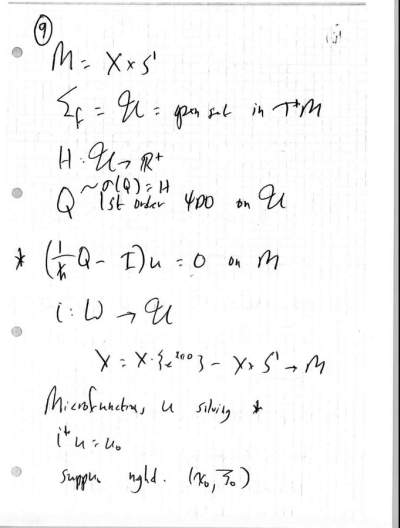 9
M = X × S¹
Σ_f = 𝒰 = open set in T*M
H : 𝒰 → ℝ⁺
Q ~ σ(Q) = H
1st order ψDO on 𝒰
* (1/ħ Q − I) u = 0 on M
i : W → 𝒰
X = X · {e^{2πi0}} − X × S¹ → M
Microfunctions u solving *
i* u = u₀
nghd. (x₀, ξ₀)